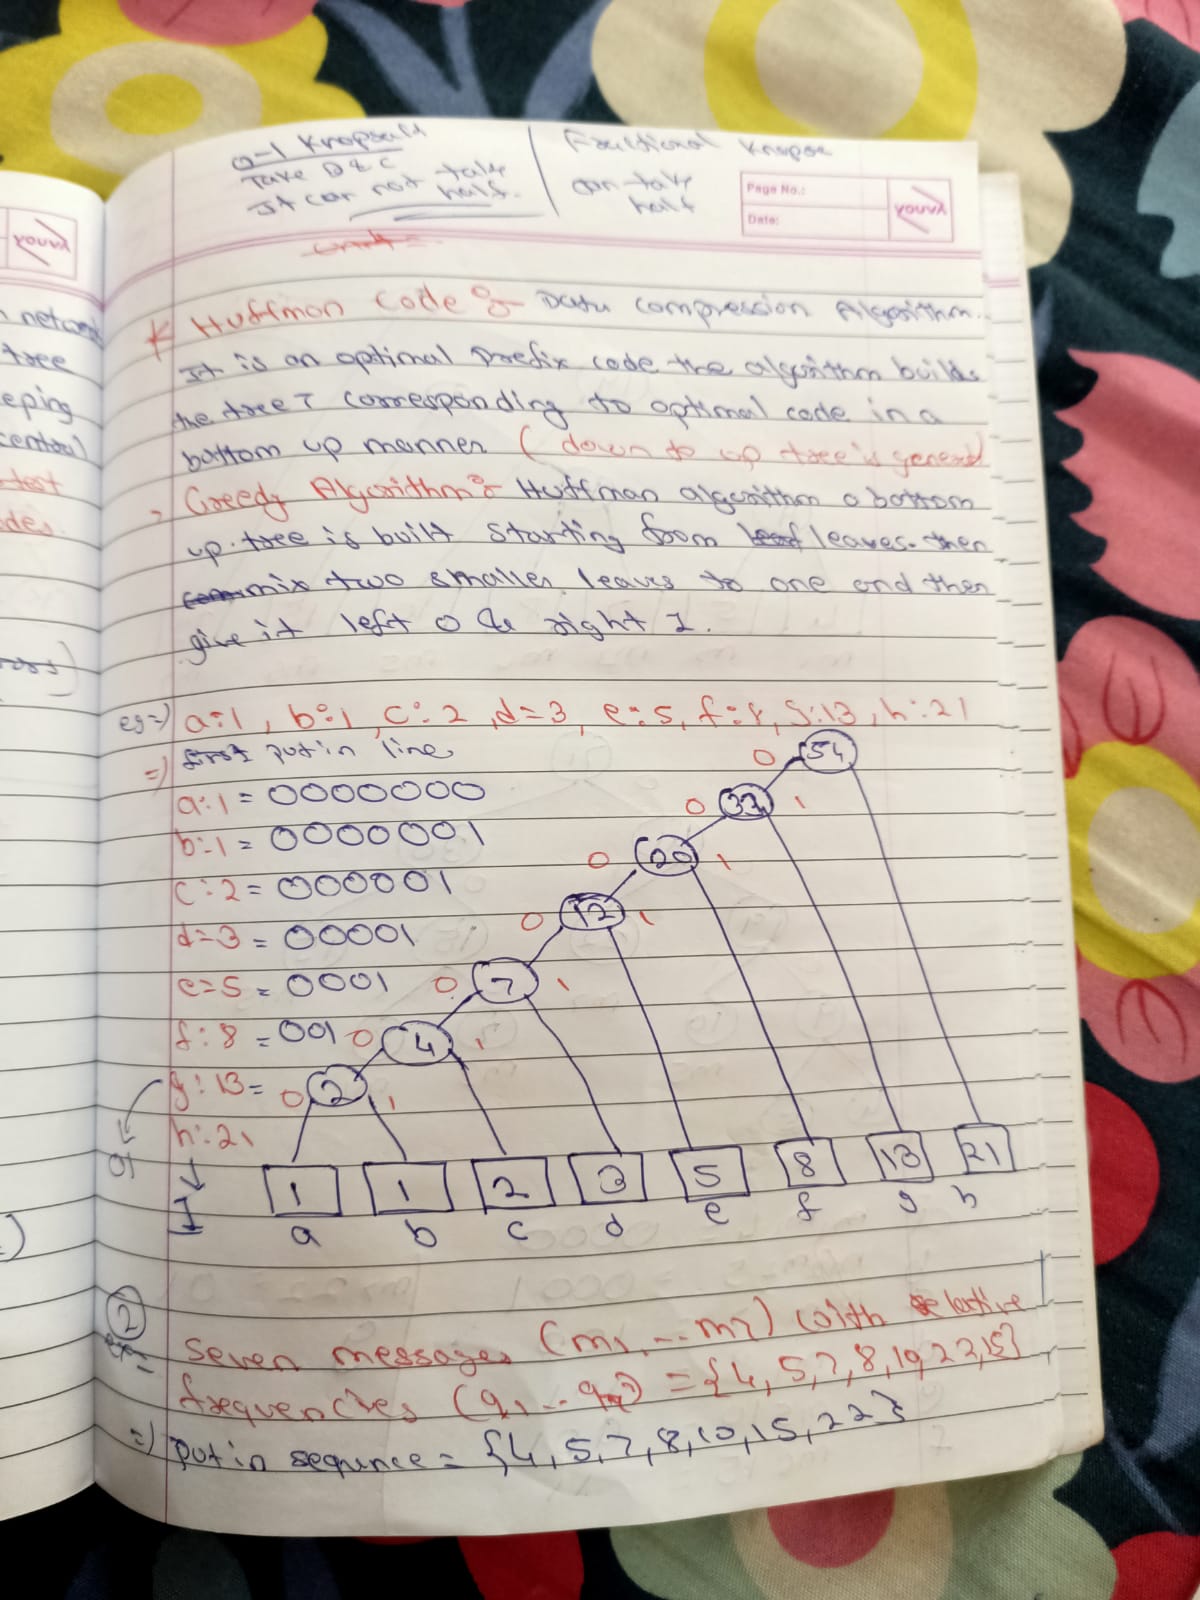 0-1 Knapsack
Take D&C
It can not take
half.
Fractional Knapsa
can take
half
Page No.:
Date:
YOUVA
YOUVA
* Huffman Code :- Data compression Algorithm.
It is an optimal prefix code the algorithm builds
the tree T corresponding to optimal code in a
bottom up manner (down to up tree is general
Greedy Algorithm :- Huffman algorithm a bottom
up tree is built starting from leaves. then
mix two smaller leaves to one and then
give it left 0 & right 1.
eg =) a:1, b:1, c:2, d=3, e=5, f:8, g:13, h:21
=) first put in line
a:1 = 0000000
b:1 = 0000001
c:2 = 000001
d=3 = 00001
e=5 = 0001
f:8 = 001
g:13=
h:21
01
1
0 54
0 33 1
0 20 1
0 12 1
0 7 1
0 4 1
0 2 1
1 1 2 3 5 8 13 21
a b c d e f g h
2
seven messages (m1, ... m7) with relative
frequencies (q1 ... q7) = {4, 5, 7, 8, 10, 22, 15}
=) put in sequence = {4, 5, 7, 8, 10, 15, 22}
n network
tree
eeping
central
test
odes.